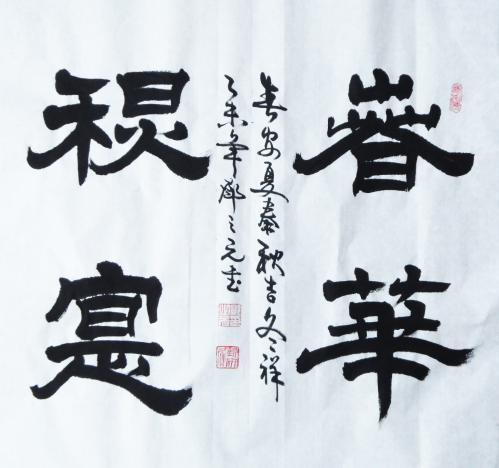 春華
春安夏泰秋吉冬祥
乙未年之元書
秋實